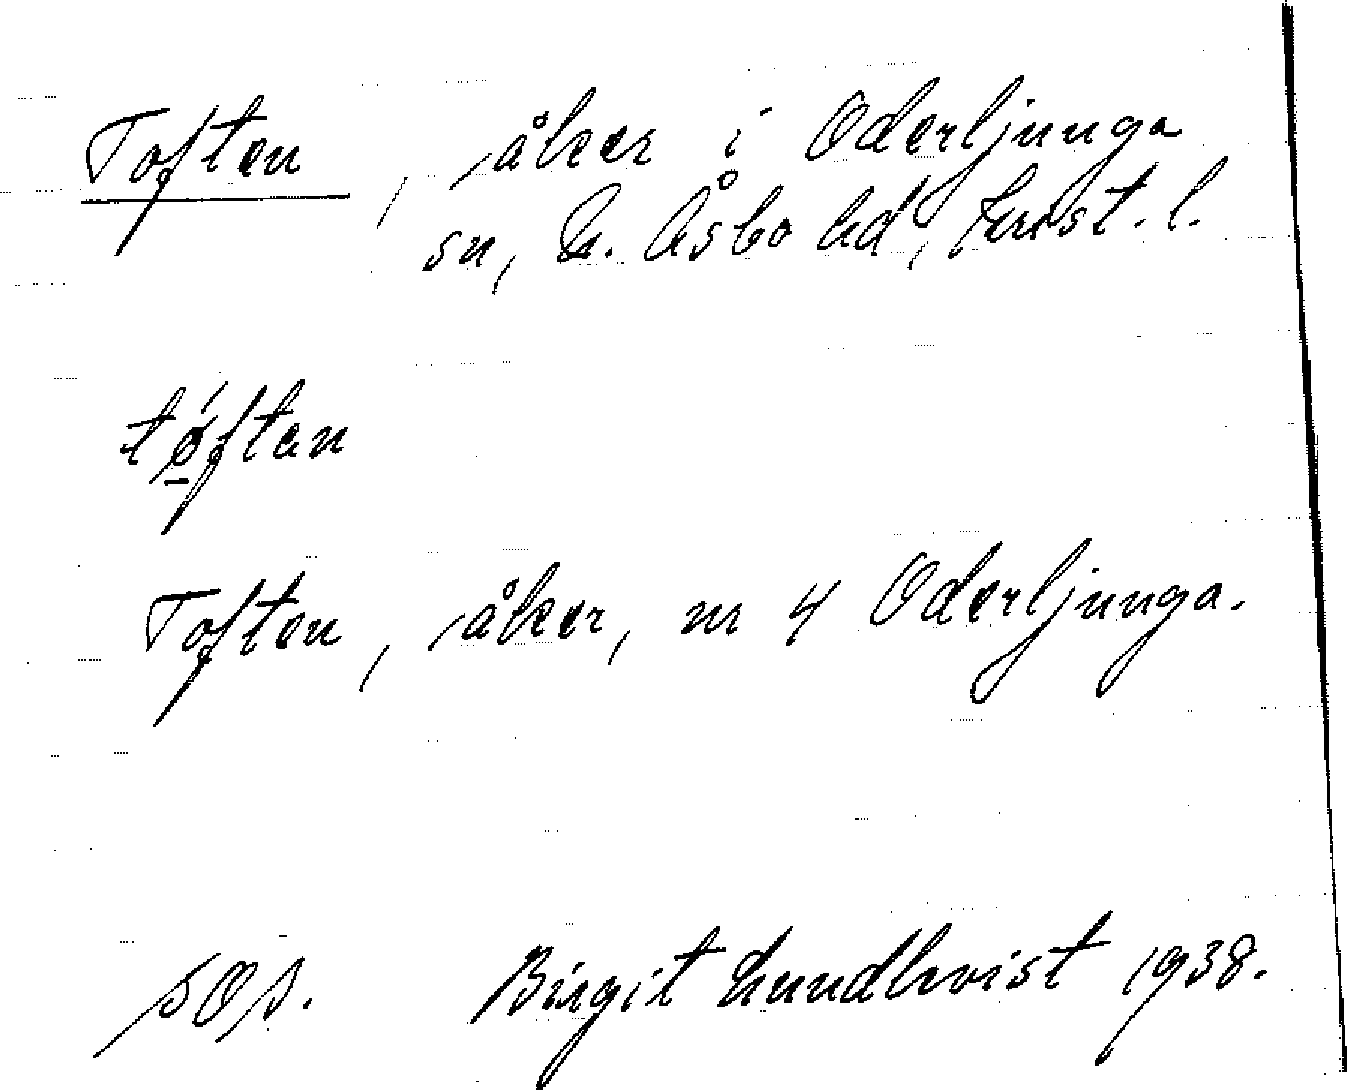 Toften, åker i Oderljunga
sn, N. Åsbo hd, Krist. l.
tǿ̱ftan
Toften, åker, nr 4 Oderljunga.
Birgit Lundkvist 1938.